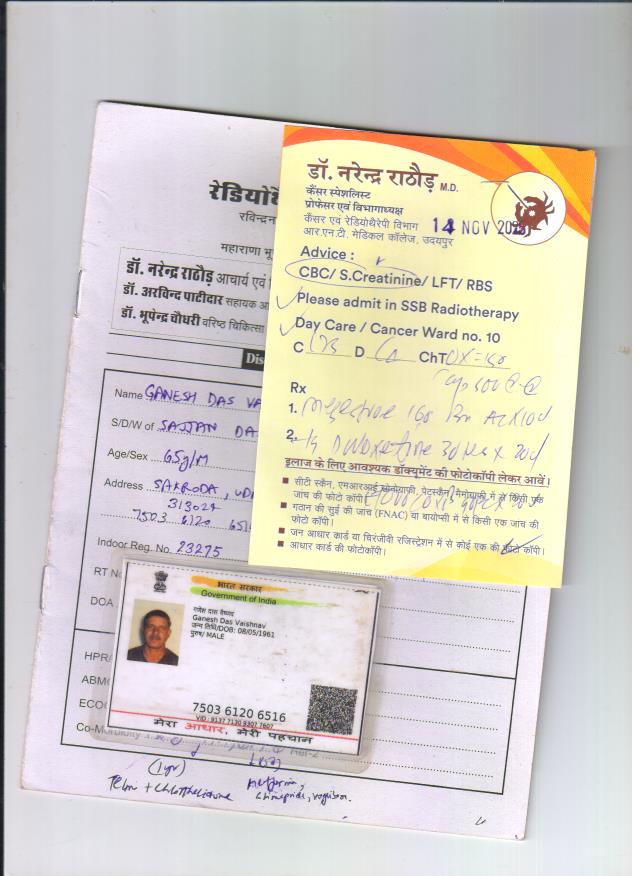 रेडियोथै
रविन्द्रन
महाराणा भू
डॉ. नरेन्द्र राठौड़ आचार्य एवं
डॉ. अरविन्द पाटीदार सहायक आ
डॉ. भूपेन्द्र चौधरी वरिष्ठ चिकित्सा
Dis
Name GANESH DAS VA
S/D/W of SAJJAN DA
Age/Sex 65y/M
Address SAKRODA, UDA
313024
7503 6120 651
Indoor Reg. No. 23275
RT No
DOA
HPR/
ABM
ECO
Co-Morbidity
(1yr)
Telmi + Chlorthalidone
Metformin,
Glimepride, voglibose.
डॉ. नरेन्द्र राठौड़ M.D.
कैंसर स्पेशलिस्ट
प्रोफेसर एवं विभागाध्यक्ष
कैंसर एवं रेडियोथैरेपी विभाग
14 NOV
आर.एन.टी. मेडिकल कॉलेज, उदयपुर
Advice :
CBC/ S.Creatinine/ LFT/ RBS
Please admit in SSB Radiotherapy
Day Care / Cancer Ward no. 10
C D ChT
Rx
1.
2.
इलाज के लिए आवश्यक डॉक्यूमेंट की फोटोकॉपी लेकर आवें।
सीटी स्कैन, एमआरआई, सोनोग्राफी, पेटस्कैन, मैमोग्राफी में से किसी एक
जांच की फोटो कॉपी
गठान की सुई की जांच (FNAC) या बायोप्सी में से किसी एक जांच की
फोटो कॉपी।
जन आधार कार्ड या चिरंजीवी रजिस्ट्रेशन में से कोई एक की फोटो कॉपी।
आधार कार्ड की फोटोकॉपी।
भारत सरकार
Government of India
गणेश दास वैष्णव
Ganesh Das Vaishnav
जन्म तिथि/DOB: 08/05/1961
पुरुष/ MALE
7503 6120 6516
VID : 9137 7130 9307 7607
मेरा आधार, मेरी पहचान